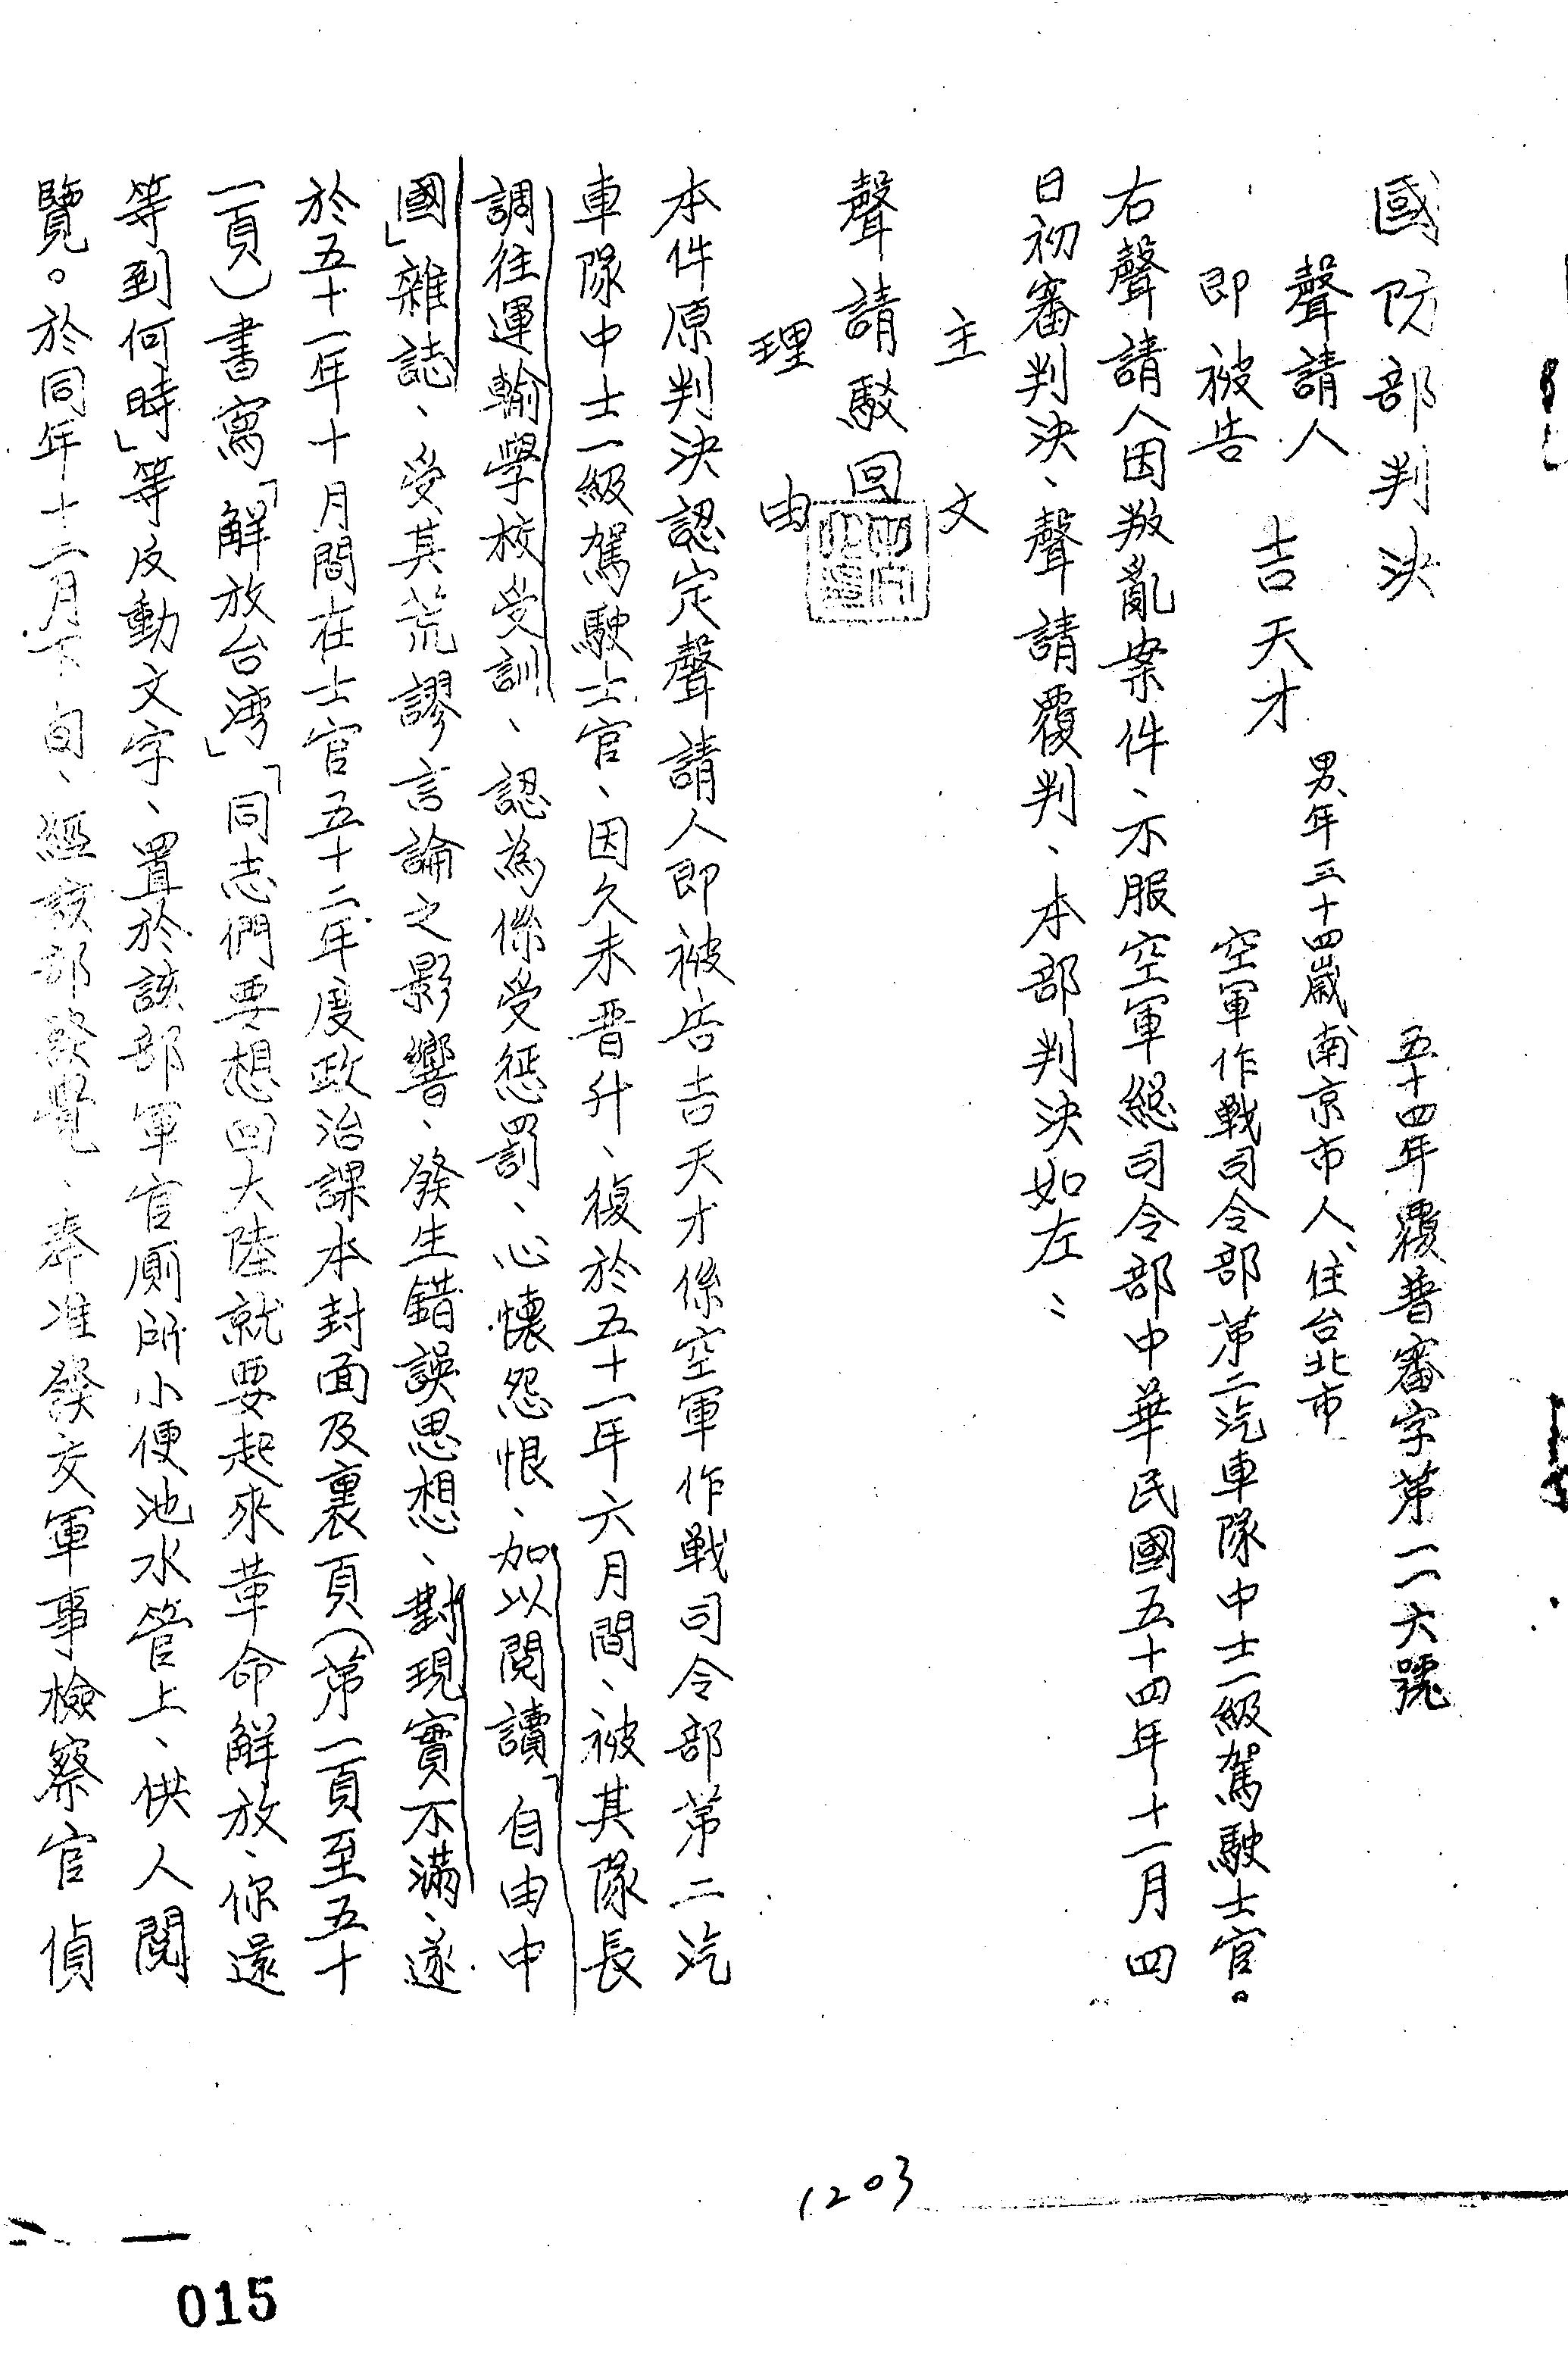 國防部判決
五十四年覆普審字第一一六號
聲請人
即被告
吉天才
男、年三十四歲南京市人、住台北市
空軍作戰司令部第二汽車隊中士一級駕駛士官。
右聲請人因叛亂案件、不服空軍總司令部中華民國五十四年十一月四
日初審判決、聲請覆判、本部判決如左：
主文
聲請駁回
理由
本件原判決認定聲請人即被告吉天才係空軍作戰司令部第二汽
車隊中士一級駕駛士官、因久未晉升、復於五十一年六月間、被其隊長
調往運輸學校受訓、認為係受惩罰、心懷怨恨、加以閱讀「自由中
國」雜誌、受其荒謬言論之影響、發生錯誤思想、對現實不滿、遂
於五十一年十月間在士官五十二年度政治課本封面及裏頁（第一頁至五十
一頁）書寫「解放台湾」「同志們要想回大陸就要起來革命解放、你還
等到何時」等反動文字、置於該部軍官廁所小便池水管上、供人閱
覽。於同年十二月下旬、經該部發覺、奉准發交軍事檢察官偵
1203
015